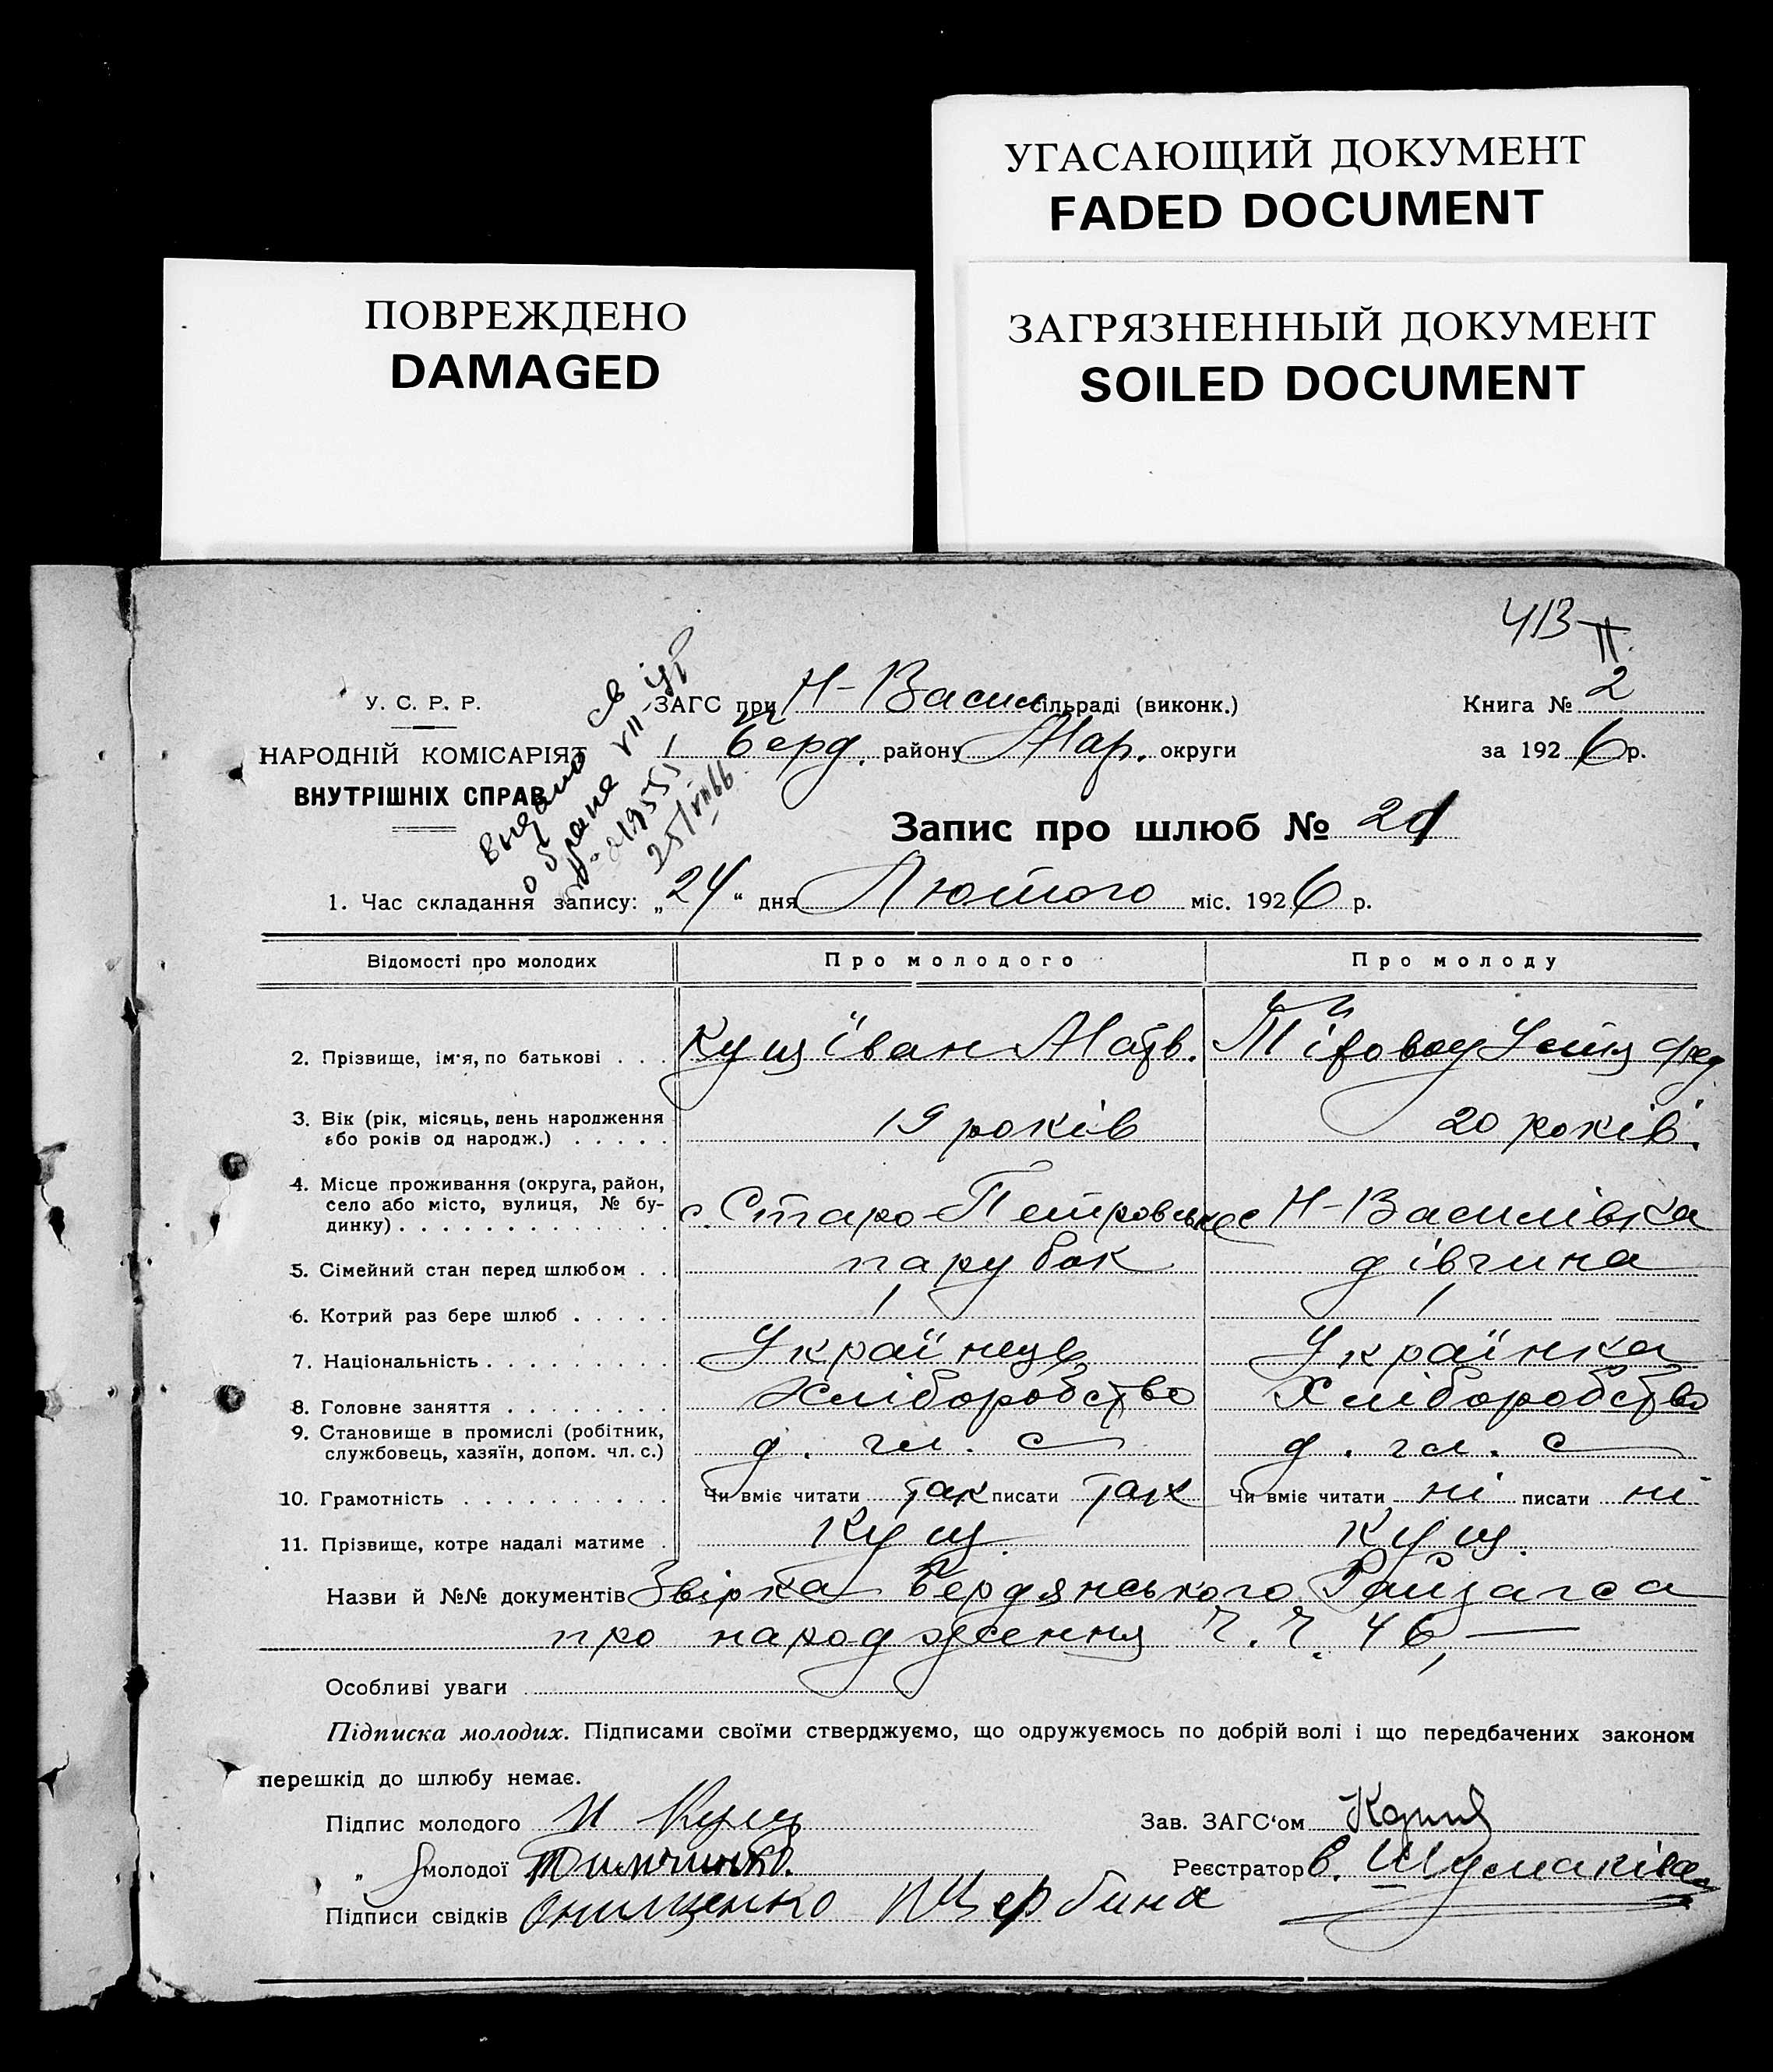 УГАСАЮЩИЙ ДОКУМЕНТ
FADED DOCUMENT
ПОВРЕЖДЕНО
DAMAGED
ЗАГРЯЗНЕННЫЙ ДОКУМЕНТ
SOILED DOCUMENT
413
II
У. С. Р. Р.
НАРОДНІЙ КОМІСАРІЯТ
ВНУТРІШНІХ СПРАВ
Видано св
о браке VII
25/VII 66
ЗАГС при Н-Васил сільраді (виконк.)
Берд. району Мар. округи
Книга № 2
за 1926 р.
Запис про шлюб № 21
1. Час складання запису: „24“ дня Лютого міс. 1926 р.
Відомості про молодих Про молодого Про молоду
2. Прізвище, ім'я, по батькові . . . Кущ Іван Матв. Устя Фед
3. Вік (рік, місяць, день народження
або років од народж.) . . . . . 19 років 20 років.
4. Місце проживання (округа, район,
село або місто, вулиця, № бу-
динку) . . . . . . . . . . . . с. Старо-Петровське с Н-Василівка
5. Сімейний стан перед шлюбом . . парубок дівчина
6. Котрий раз бере шлюб . . . . . 1 1
7. Національність . . . . . . . . . Українець Українка
8. Головне заняття . . . . . . . . Хліборобство Хліборобство
9. Становище в промислі (робітник,
службовець, хазяїн, допом. чл. с.) д. чл. с д. чл. с
10. Грамотність . . . . . . . . . . . Чи вміє читати так писати так Чи вміє читати ні писати ні
11. Прізвище, котре надалі матиме . Кущ. Кущ.
Назви й №№ документів Звірка Бердянського Райзагса
про народження Ч.Ч. 46,
Особливі уваги
Підписка молодих. Підписами своїми стверджуємо, що одружуємось по добрій волі і що передбачених законом
перешкід до шлюбу немає.
Підпис молодого И Кущ
Зав. ЗАГС'ом
„ молодої
Реєстратор в. Шумаків
Підписи свідків Онищенко Щербина